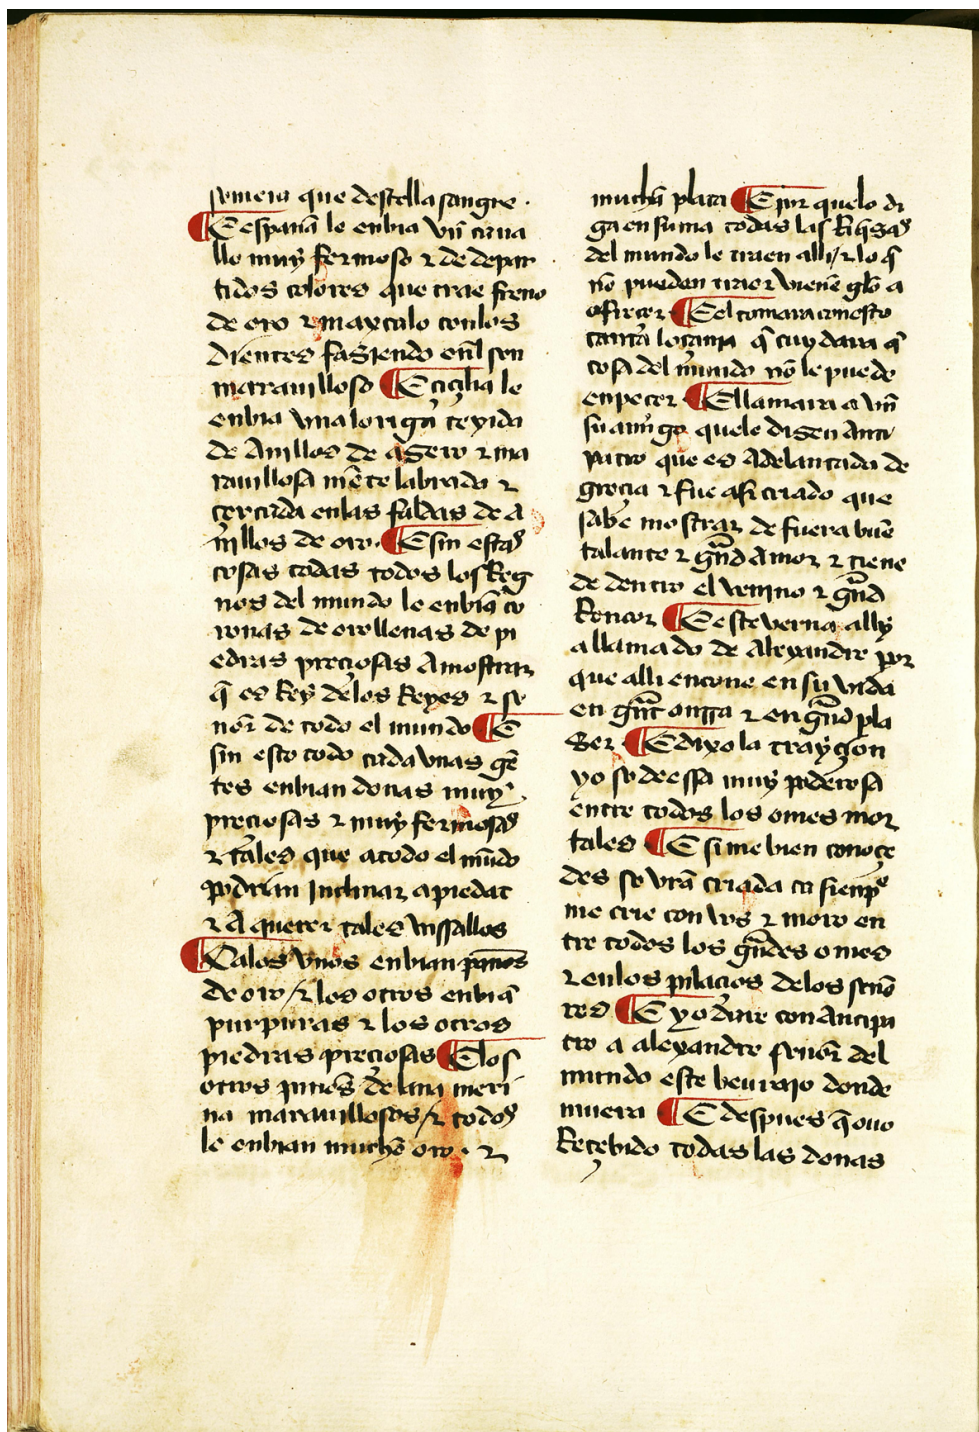 semeia que destella sangre.
¶ E españa le enbia vn caua
llo muy fermoso ⁊ de depar
tidos colores que trae freno
de oro ⁊ maxcalo con los
dientes fasiendo enl son
marauilloso ¶ E ciçilia le
enbia vna loriga teyida
de Anillos de asero ⁊ ma
rauillosa mẽte labrada ⁊
çercada enlas faldas de A
nillos de oro. ¶ E sin estas
cosas todas todos los Reg
nos del mundo le enbiã co
ronas de oro llenas de pi
edras preçiosas Amostrar
q̃ es Rey delos Reyes ⁊ se
nõr de todo el mundo ¶ E
sin esto todo cada vnas gẽ
tes enbian donas muy
preçiosas ⁊ muy fermosas
⁊ tales que atodo el mũdo
podrian Inclinar apiedat
⁊ A querer tales vassallos
¶ Calos vnos enbian pannos
de oro / ⁊ los otros enbiã
purpuras ⁊ los otros
piedras preçiosas ¶ E los
otros pannos de lana meri
na marauillosos / ⁊ todos
le enbian mucho oro. ⁊
mucha plata ¶ E por quelo di
ga en suma todas las Riqsas
del mundo le traen alli / ⁊ lo q̃
nõ pueden traer vienẽ gelo a
ofreçer. ¶ E el tomara con esto
tanta loçania q̃ cuydara q̃
cosa del mundo nõ le puede
enpeçer ¶ E llamara a vn
su amigo quele disen Anti
patro que es Adelantado de
greçia ⁊ fue asi criado que
sabe mostrar de fuera buẽ
talante ⁊ grãd Amor ⁊ tiene
de dentro el venino ⁊ grãd
Rencor ¶ E este verna ally
a llamado de Alexandre por
que alli encone en su vida
en grãt onrra ⁊ en grãd pla
ser ¶ E dixo la trayçon
yo so deessa muy poderosa
entre todos los omes mor
tales ¶ E si me bien conoçe
des so vrã criada ca sienpre
me crie con vos ⁊ moro en
tre todos los grãdes omes
⁊ enlos palaçios delos seño
res ¶ E yo dare con Antipa
tro a alexandre señor del
mundo este beuraio donde
muera ¶ E despues q̃ ouo
Reçebido todas las donas